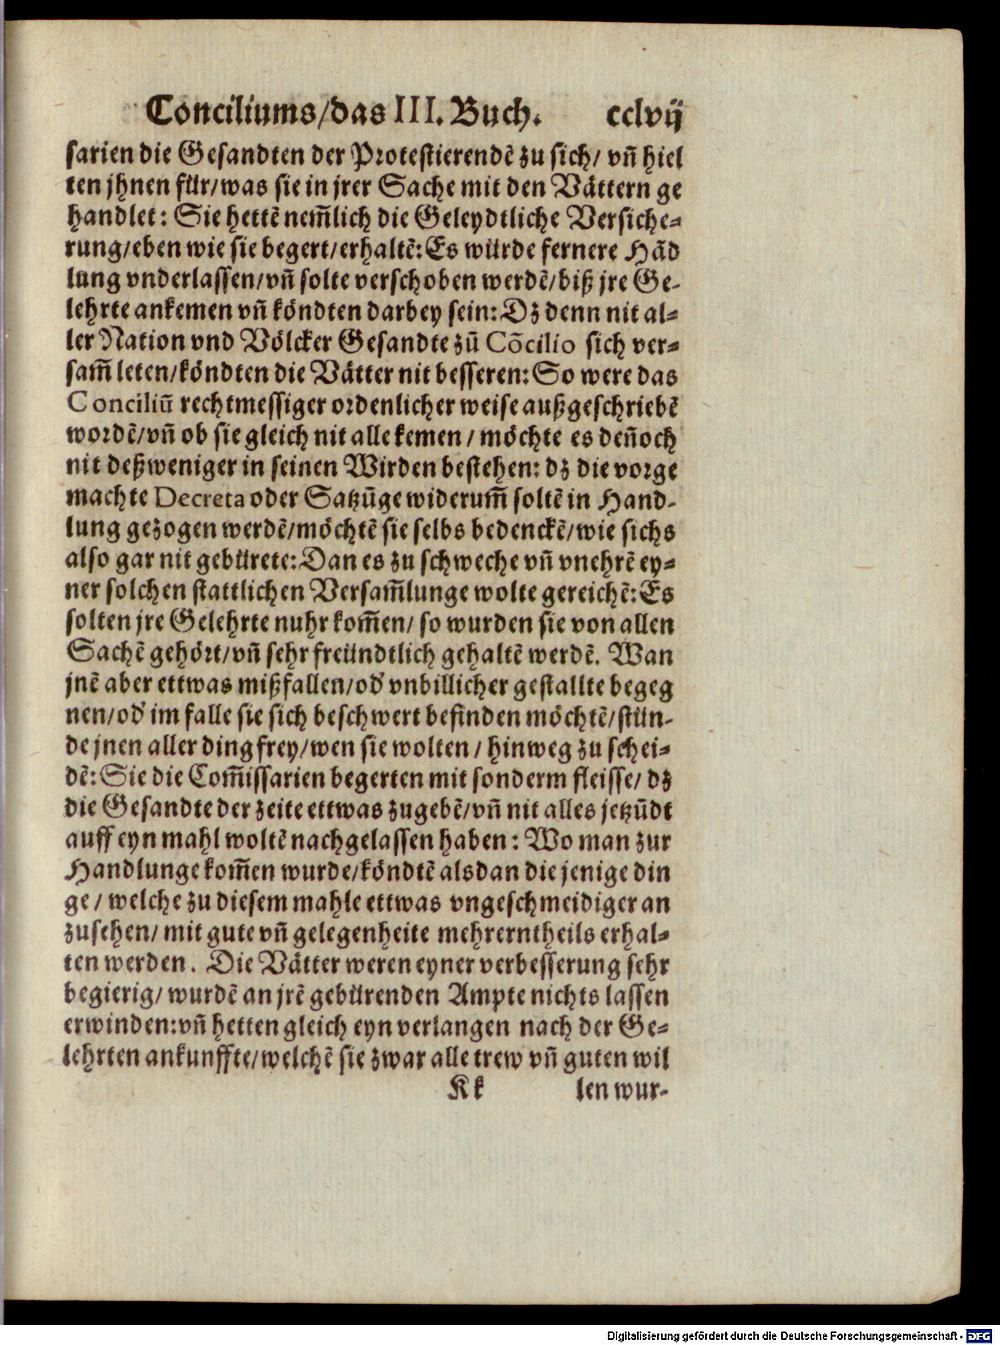 Conciliums/das III. Buch. cclvij
sarien die Gesandten der Protestierendẽ zu sich/ vñ hiel
ten jhnen für/was sie in jrer Sache mit den Vättern ge
handlet: Sie hettẽ nem̃lich die Geleydtliche Versiche-
rung/eben wie sie begert/erhaltẽ: Es würde fernere Hãd
lung vnderlassen/vñ solte verschoben werdẽ/biß jre Ge-
lehrte ankemen vñ köndten darbey sein: Dz denn nit al-
ler Nation vnd Völcker Gesandte zũ Cõcilio sich ver-
sam̃leten/köndten die Vätter nit besseren: So were das
Conciliũ rechtmessiger ordenlicher weise außgeschriebẽ
wordẽ/vñ ob sie gleich nit alle kemen/ möchte es deñoch
nit deßweniger in seinen Wirden bestehen: dz die vorge
machte Decreta oder Satzũge widerum̃ soltẽ in Hand-
lung gezogen werdẽ/möchtẽ sie selbs bedenckẽ/wie sichs
also gar nit gebürete: Dan es zu schweche vñ vnehrẽ ey-
ner solchen stattlichen Versam̃lunge wolte gereichẽ: Es
solten jre Gelehrte nuhr kom̃en/ so wurden sie von allen
Sachẽ gehört/vñ sehr freündtlich gehaltẽ werdẽ. Wan
jnẽ aber ettwas mißfallen/od' vnbillicher gestallte begeg
nen/od' im falle sie sich beschwert befinden möchtẽ/stün-
de jnen aller ding frey/wen sie wolten/ hinweg zu schei-
dẽ: Sie die Com̃issarien begerten mit sonderm fleisse/ dz
die Gesandte der zeite ettwas zugebẽ/vñ nit alles jetzũdt
auff eyn mahl woltẽ nachgelassen haben: Wo man zur
Handlunge kom̃en wurde/köndtẽ alsdan die jenige din
ge/ welche zu diesem mahle ettwas vngeschmeidiger an
zusehen/ mit gute vñ gelegenheite mehrerntheils erhal-
ten werden. Die Vätter weren eyner verbesserung sehr
begierig/ wurdẽ an jrẽ gebürenden Ampte nichts lassen
erwinden: vñ hetten gleich eyn verlangen nach der Ge-
lehrten ankunffte/welchẽ sie zwar alle trew vñ guten wil
Kk len wur-
Digitalisierung gefördert durch die Deutsche Forschungsgemeinschaft - DFG